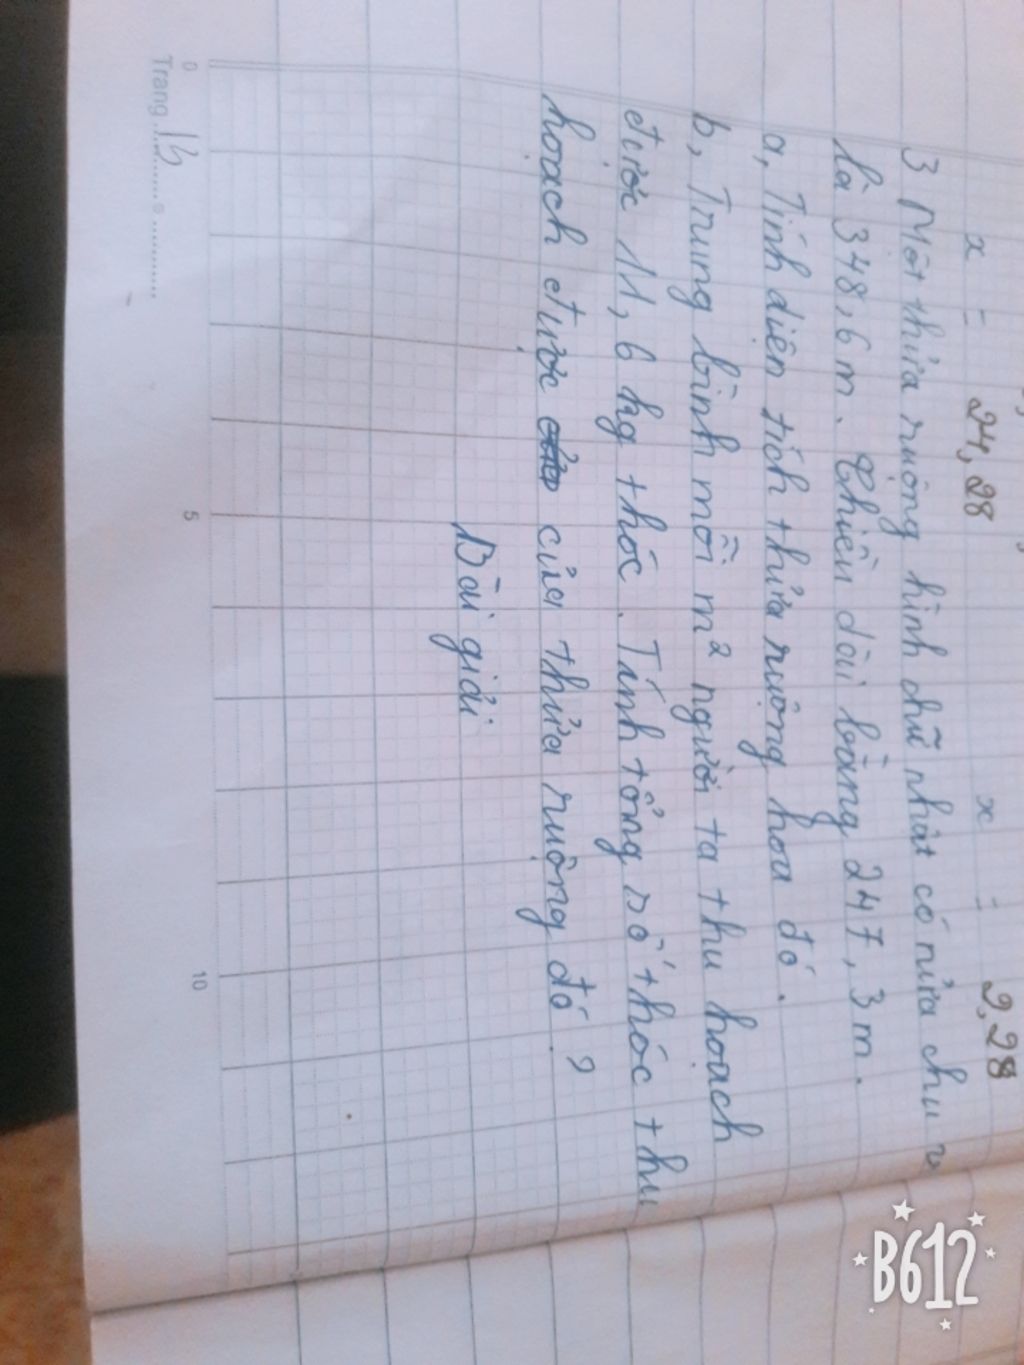 x = 24,28 x = 2,28
3 Một thửa ruộng hình chữ nhật có nửa chu v
là 348,6 m. Chiều dài bằng 247,3 m.
a, Tính diện tích thửa ruộng hoa đó.
b, Trung bình mỗi m² người ta thu hoạch
được 11,6 kg thóc. Tính tổng số thóc thu
hoạch được của thửa ruộng đó ?
Bài giải
Trang
0
5
10
B612